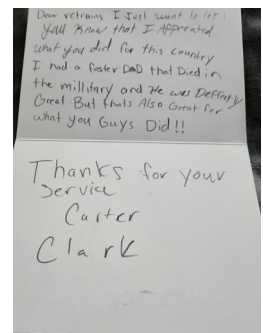 Dear vetrains I Just want to let
yall Know that I Appreated
what you did for this Country
I had a foster DAD that Died in
the millitary and He was Deffertly
Great But thats Also Great for
what you Guys Did!!
Thanks for your
Service
Carter
Clark